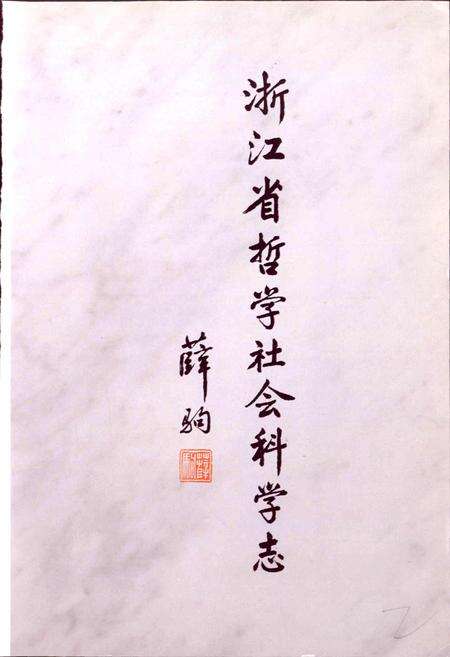 浙江省哲学社会科学志
薛驹